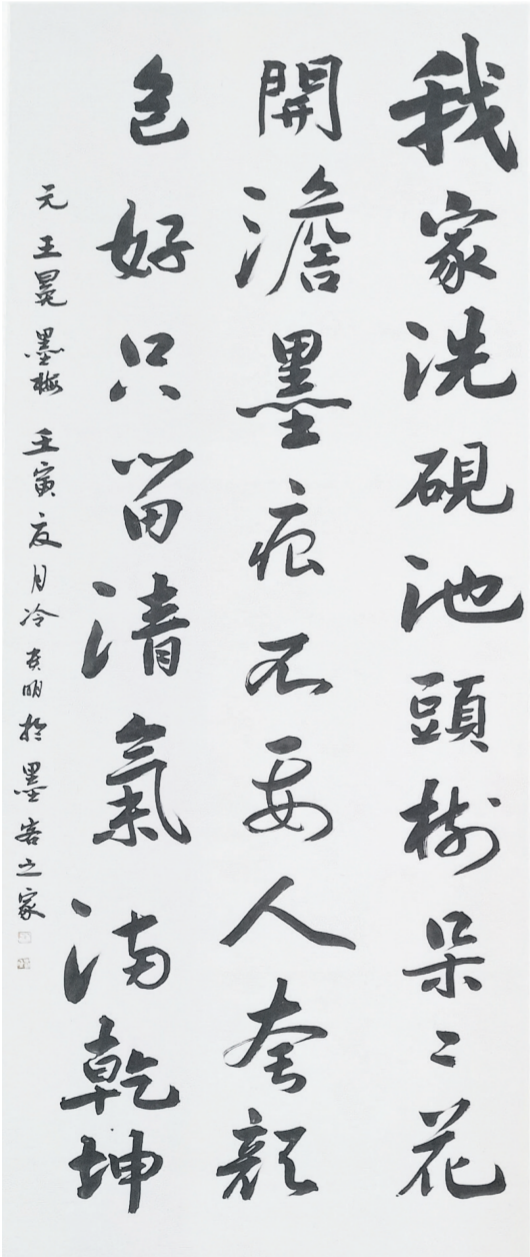 我家洗硯池頭樹朵〻花
開澹墨痕不要人夸顏
色好只留清氣滿乾坤
元王冕墨梅壬寅夏月冷 明於墨客之家